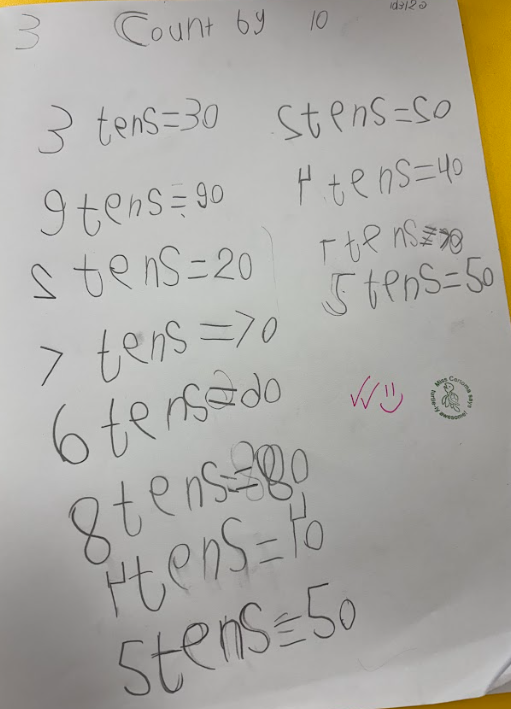 3 Count by 10
3 tens=30
9 tens=90
2 tens=20
7 tens=70
6 tens=60
8 tens=80
4 tens=40
5 tens=50
5 tens=50
4 tens=40
tens=
5 tens=50
Miss Caruana says
you're awesome!